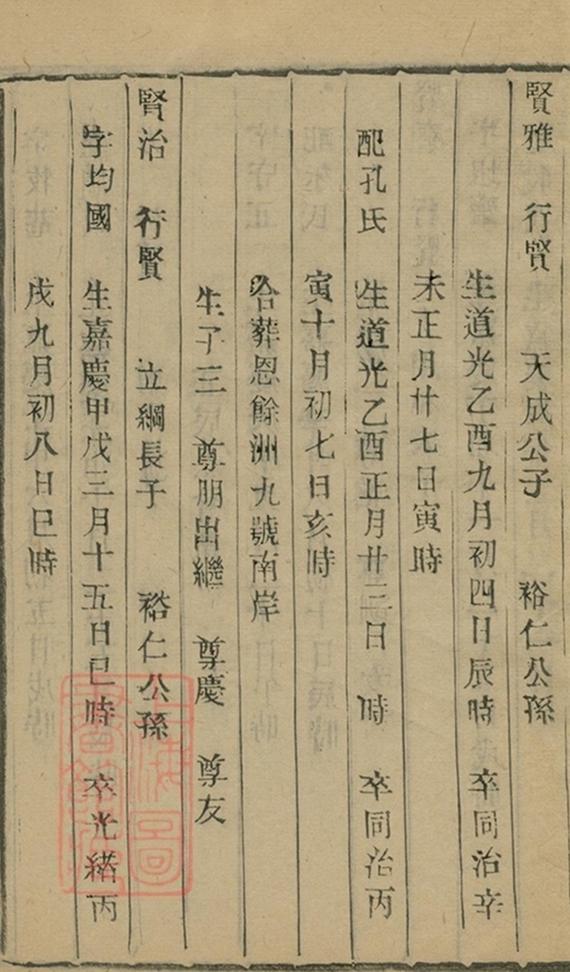 賢雅 行賢 天成公子 裕仁公孫
生道光乙酉九月初四日辰時 卒同治辛
未正月廿七日寅時
配孔氏 生道光乙酉正月廿三日 時 卒同治丙
寅十月初七日亥時
合葬恩餘洲九號南岸
生子三 尊朋出繼 尊慶 尊友
賢治 行賢 立綱長子 裕仁公孫
字均國 生嘉慶甲戌三月十五日巳時 卒光緒丙
戌九月初八日巳時